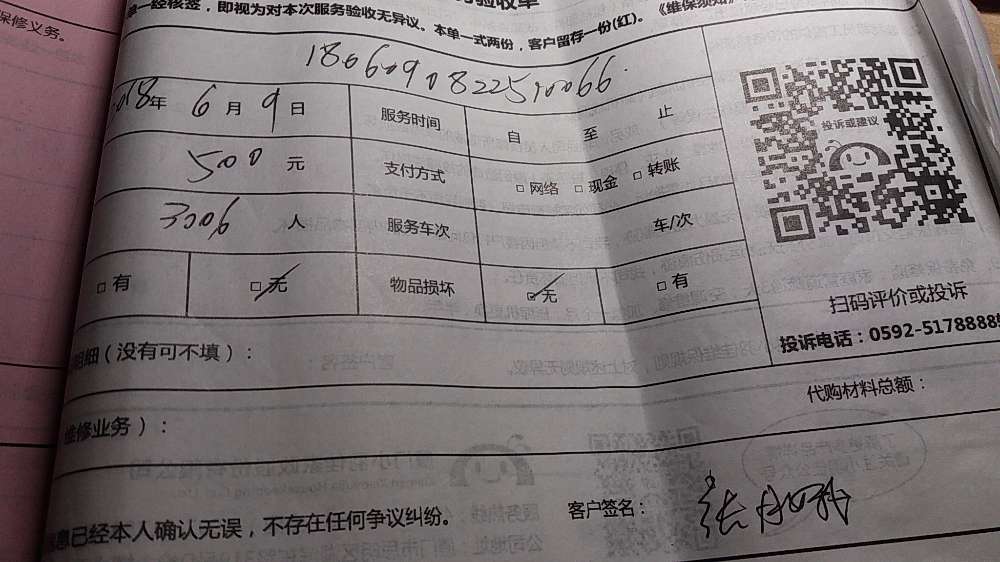 保修义务。
验收单
一经核签，即视为对本次服务验收无异议。本单一式两份，客户留存一份(红)。《维保须知》
1806090822510066
2018年 6月9日 服务时间 自 至 止
500 元 支付方式 □网络 □现金 □转账
人 服务车次 车/次
□有 □无 物品损坏 □无 □有
投诉或建议
扫码评价或投诉
投诉电话：0592-5178888
明细（没有可不填）：
代购材料总额：
维修业务）：
息已经本人确认无误，不存在任何争议纠纷。
客户签名：